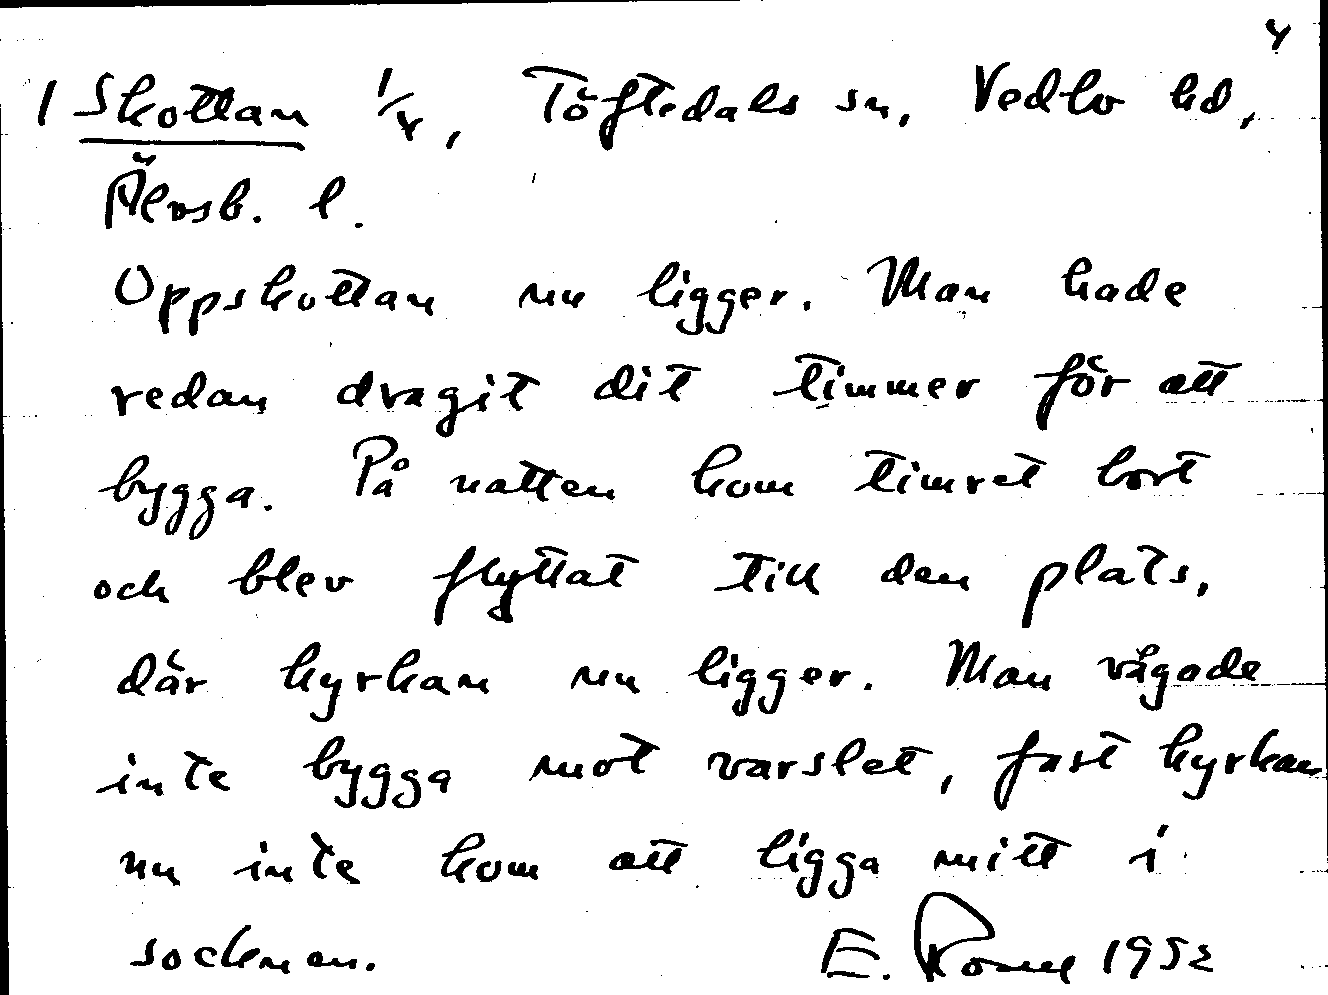 4
1 Skottan 1/4, Töftedals sn, Vedbo hd,
Älvsb. l.
Oppskottan nu ligger. Man hade
redan dragit dit timmer för att
bygga. På natten kom timret bort
och blev flyttat till den plats,
där kyrkan nu ligger. Man vågade
inte bygga mot varslet, fast kyrkan
nu inte kom att ligga mitt i
socknen. E. 1952